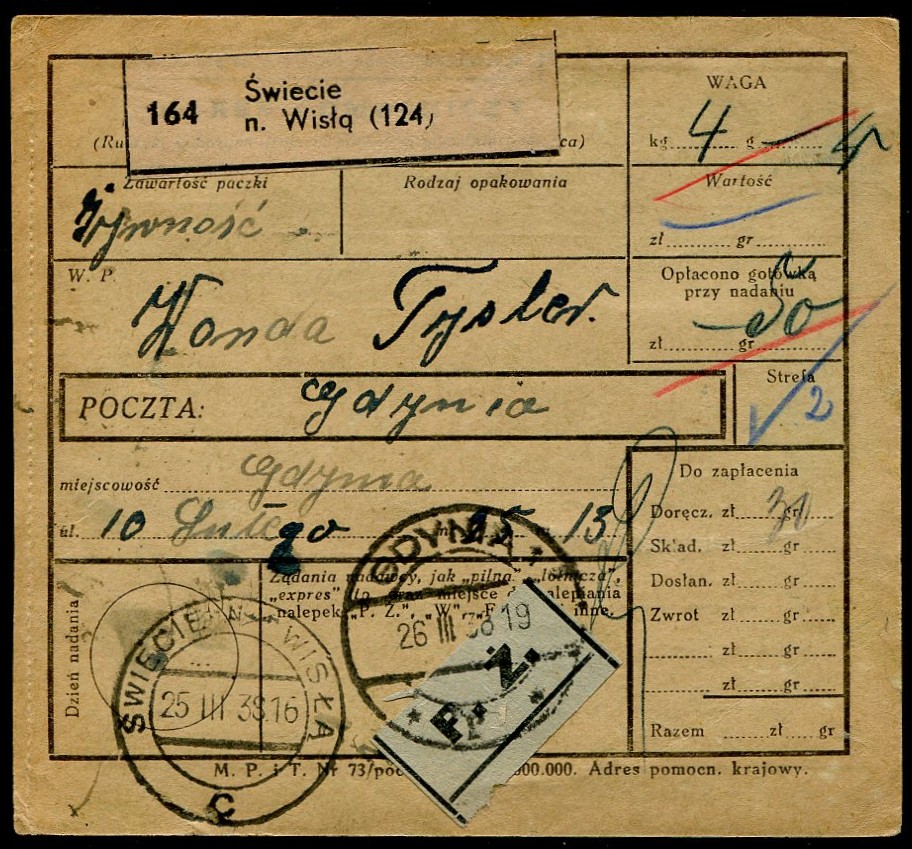 164 Świecie
n. Wisłą (124)
WAGA
kg 4 g
Zawartość paczki
Żywność
Rodzaj opakowania
Wartość
zł gr
W. P.
Wanda Tysler.
Opłacono gotówką
przy nadaniu
zł gr
50
POCZTA: Gdynia
Strefa
2
miejscowość Gdynia
ul. 10 Lutego 13
Do zapłacenia
Doręcz. zł 30 gr
Skład. zł gr
Dosłan. zł gr
Zwrot zł gr
: zł gr
: zł gr
Razem zł gr
Żądania nadawcy, jak „pilna" „lotnicza",
„expres" itp. oraz miejsce do nalepiania
nalepek „P. Ż.", „W", inne.
Dzień nadania
ŚWIECIE N. WISŁĄ
25 III 38.16
C
GDYNIA 1
26 III 38 19
P. Ż.
M. P. i T. Nr 73/poc 000.000. Adres pomocn. krajowy.